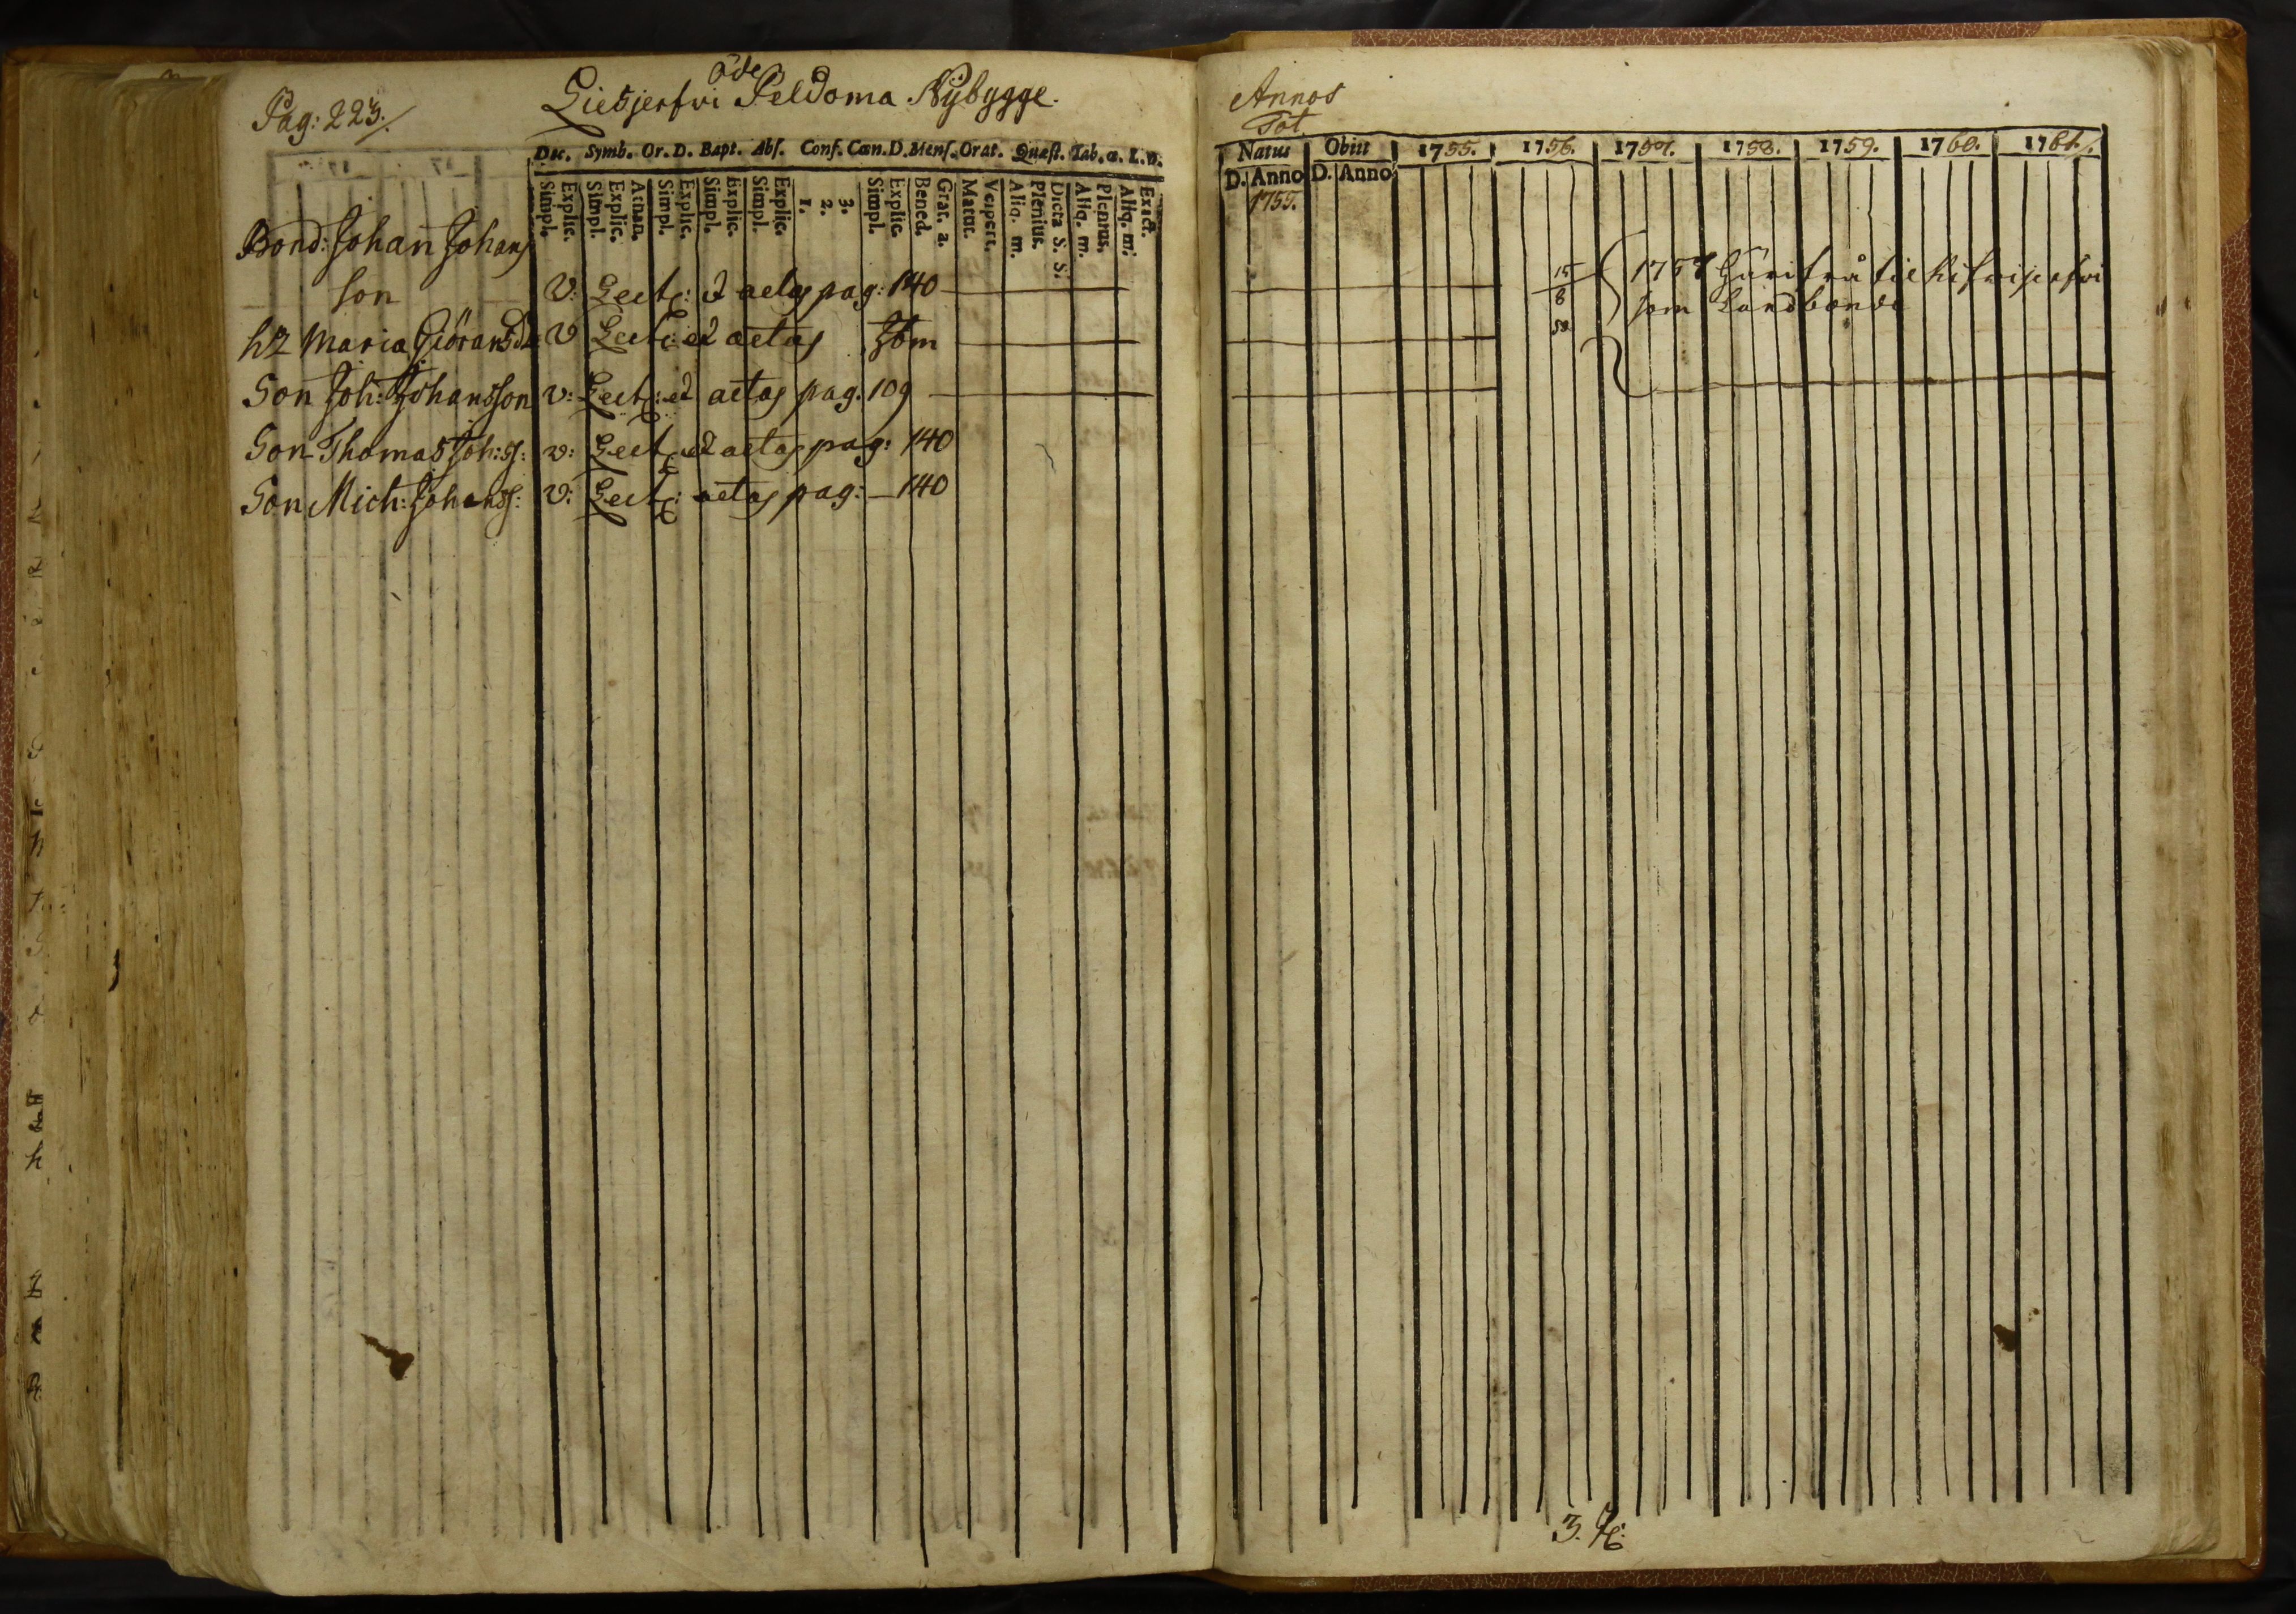 Pag: 223.
öde
Liesjerfvi Peldoma Nÿbygge.
Dec. Symb. Or. D. Bapt. Abs. Conf. Cœn. D. Mens. Orat. Quæst. Tab. œ. L. n.
Simpl. Explic. Simpl. Explic. Athan. Simpl. Explic. Simpl. Explic. Simpl. Explic. 1. 2. 3. Simpl. Explic. Bened. Grat. a. Matut. Vespert. Aliq. m. Plenius. Dicta S. S. Aliq. m. Plenius. Aliq. m. Exact.
Bond: Johan Johans
son V: Lect: et aetas pag: 140
hr Maria Giöransdr V Lect: et aetas
Son Joh: Johansson v: Lect: et aetas pag. 109
Son Thomas Joh:s: v: Lect: et aetas pag: 140
Son Mich: Johans: V: Lect: aetas pag: 140
Annos
Tot
Natus Obiit 1755. 1756. 1757. 1758. 1759. 1760. 1761.
D. Anno D. Anno
1755.
15
8
1757 til
som Landbonde
3.